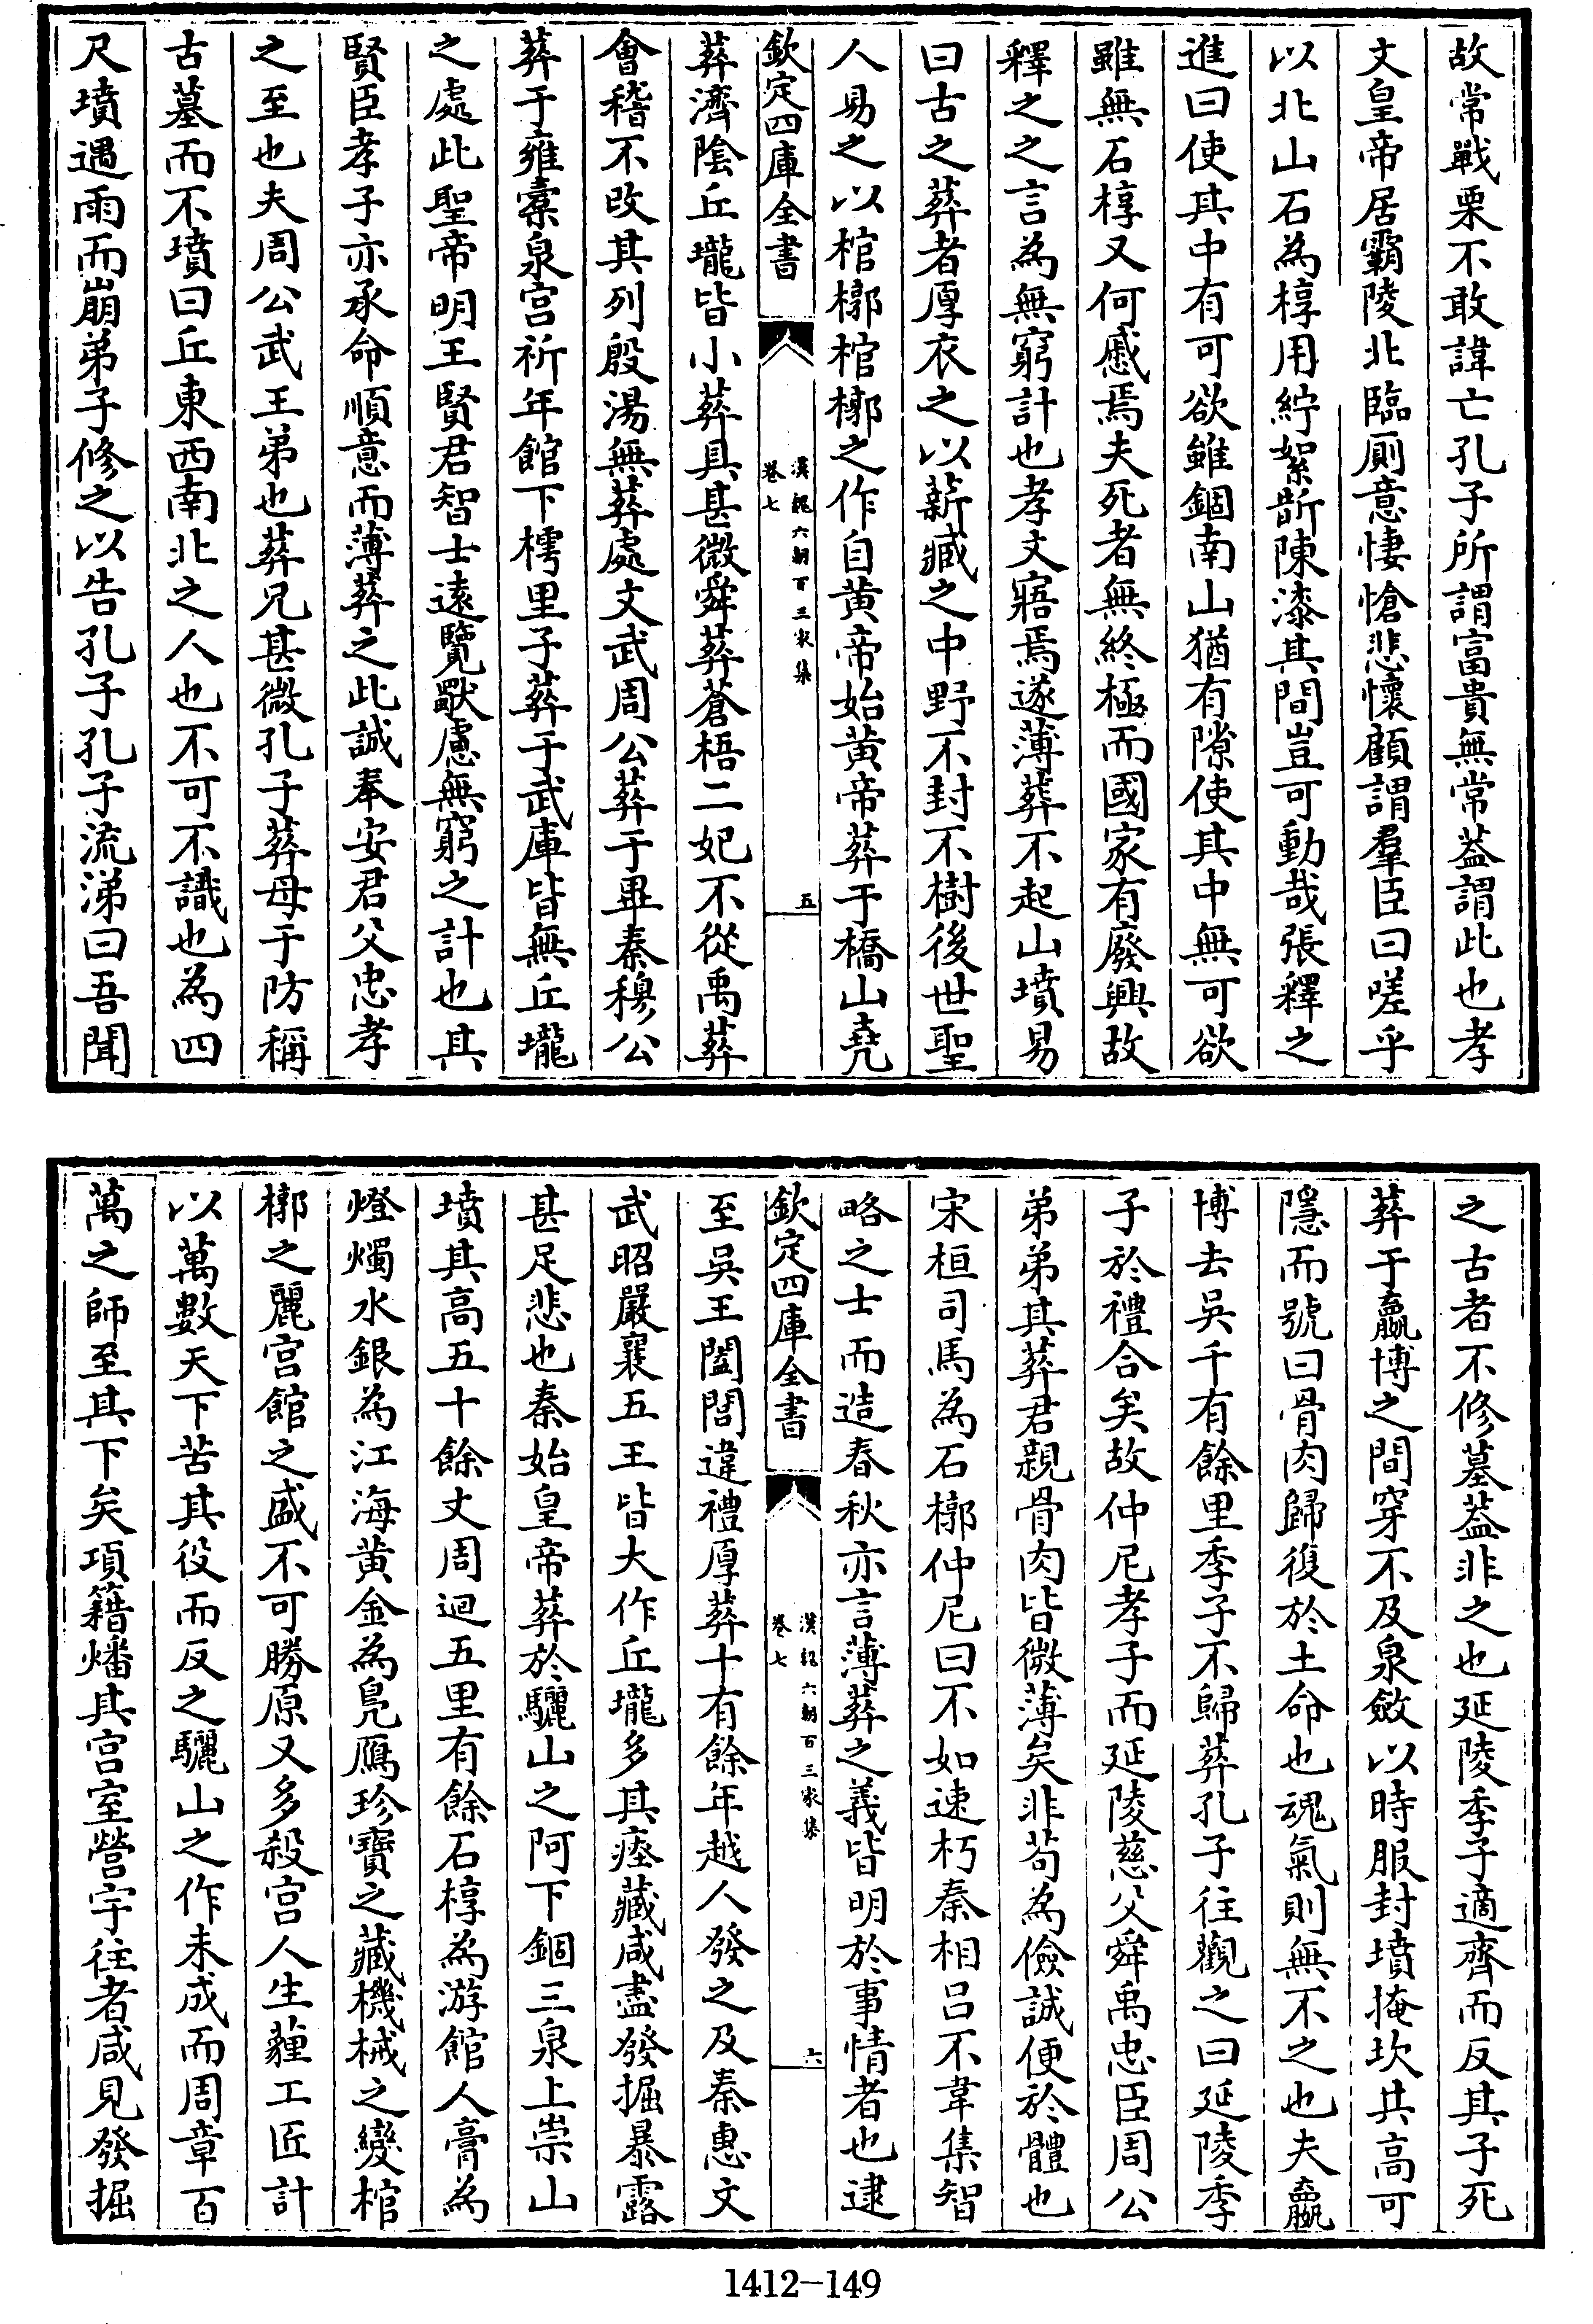 故常戰栗不敢諱亡孔子所謂富貴無常葢謂此也孝
文皇帝居霸陵北臨厠意悽愴悲懷顧謂羣臣曰嗟乎
以北山石為椁用紵絮斮陳漆其間豈可動哉張釋之
進曰使其中有可欲雖錮南山猶有隙使其中無可欲
雖無石椁又何慼焉夫死者無終極而國家有廢興故
釋之之言為無窮計也孝文寤焉遂薄葬不起山墳易
曰古之葬者厚衣之以薪臧之中野不封不樹後世聖
人易之以棺槨棺槨之作自黄帝始黄帝葬于橋山堯
欽定四庫全書
漢魏六朝百三家集
卷七
五
葬濟陰丘壠皆小葬具甚微舜葬蒼梧二妃不從禹葬
會稽不改其列殷湯無葬處文武周公葬于畢秦穆公
葬于雍橐泉宫祈年館下樗里子葬于武庫皆無丘壠
之處此聖帝明王賢君智士遠覽獸慮無窮之計也其
賢臣孝子亦承命順意而薄葬之此誠奉安君父忠孝
之至也夫周公武王弟也葬兄甚微孔子葬母于防稱
古墓而不墳曰丘東西南北之人也不可不識也為四
尺墳遇雨而崩弟子修之以告孔子孔子流涕曰吾聞
之古者不修墓葢非之也延陵季子適齊而反其子死
葬于嬴博之間穿不及泉斂以時服封墳掩坎其高可
隱而號曰骨肉歸復於土命也魂氣則無不之也夫嬴
博去吳千有餘里季子不歸葬孔子往觀之曰延陵季
子於禮合矣故仲尼孝子而延陵慈父舜禹忠臣周公
弟弟其葬君親骨肉皆微薄矣非苟為儉誠便於體也
宋桓司馬為石槨仲尼曰不如速朽秦相吕不韋集智
略之士而造春秋亦言薄葬之義皆明於事情者也逮
欽定四庫全書
漢魏六朝百三家集
卷七
六
至吳王闔閭違禮厚葬十有餘年越人發之及秦惠文
武昭嚴襄五王皆大作丘壠多其瘞藏咸盡發掘暴露
甚足悲也秦始皇帝葬於驪山之阿下錮三泉上崇山
墳其高五十餘丈周迴五里有餘石椁為游館人膏為
燈燭水銀為江海黄金為鳬鴈珍寶之藏機械之變棺
槨之麗宫館之盛不可勝原又多殺宫人生薶工匠計
以萬數天下苦其役而反之驪山之作未成而周章百
萬之師至其下矣項籍燔其宫室營宇往者咸見發掘
1412-149